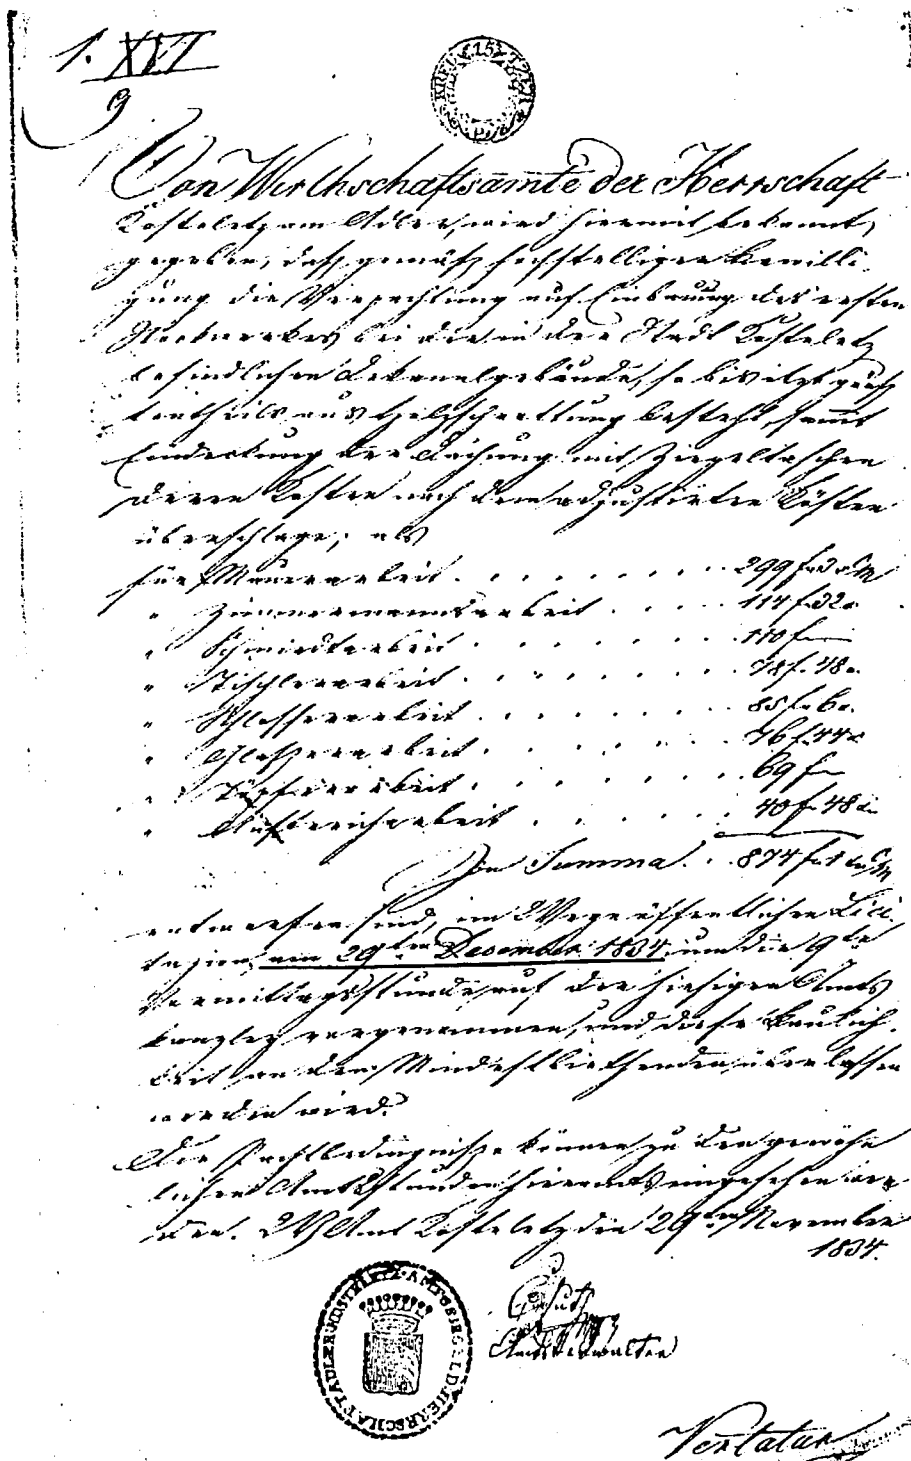 1. XVI
9
15 KREUTZER
Von Wirthschaftsamte der Herrschaft
Kosteletz am Adler, wird hiermit bekannt
gegeben, daß gemäß hochstelliger Bewilli
gung die Verpachtung auf Einbauung des ersten
Stockwerkes bei die in der Stadt Kosteletz
befindlichen Dekanalgebäude, so bis itzt
aus Holzschrottung besteht, samt
Eindeckung der Dachung mit Ziegeltaschen
deren Kosten nach dem adjustirten Kosten
überschlage, als
für Maurerarbeit . . . . . . . . 299 f
" Zimmermannsarbeit . . . . 114 f 32 x
" Schmiedtarbeit . . . . . . . . 110 f —
" Tischlerarbeit . . . . . . . . 78 f 48 x
" Schlosserarbeit . . . . . . . . 85 f 6 x
" Glaserarbeit . . . . . . . . 76 f 44 x
" Töpferarbeit . . . . . . . . 69 f —
" Anstreicherarbeit . . . . . . 40 f 48 x
In Summa . . 874 f 1 x CM
entworfen sind, im Wege öffentlichen Lici
tazion am 29ten Dezember 1834 um die 9te
Vormittagsstunde auf der hiesigen Amts
kanzley vorgenommen, und diese Baulich
keit an den Mindestbiethenden überlassen
werden wird.
Die Pachtbedingnisse können zu den gewöhn
lichen Amtsstunden hieramts eingesehen wer
den. W. Amt Kosteletz den 29ten November
1834.
Amtsverwalter
KOSTELETZ AMTSSIEGEL D. HERRSCHAFT ADLER
Vertatur